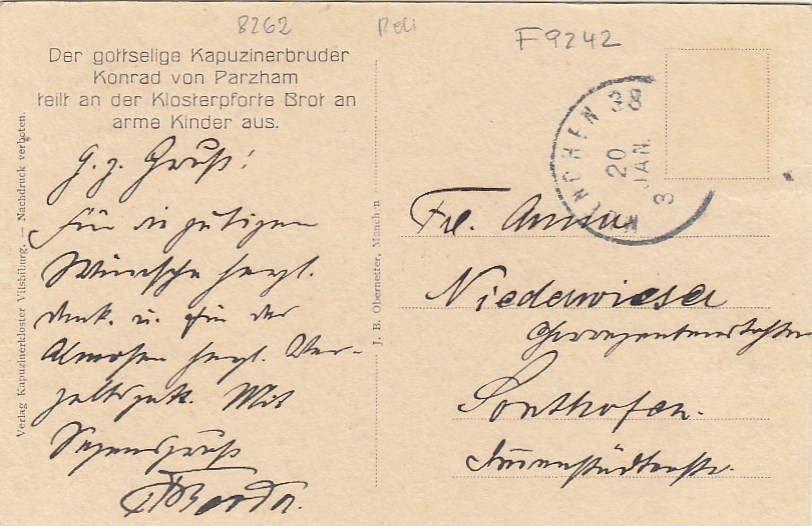 8262
Reli
F 9242
Der gottselige Kapuzinerbruder
Konrad von Parzham
teilt an der Klosterpforte Brot an
arme Kinder aus.
G. z. Gruß!
Für die gütigen
Wünsche herzl.
Dank. u. für das
Almosen herzl. Ver-
geltsgott. Mit
Segensgruß
Verlag Kapuzinerkloster Vilsbiburg. — Nachdruck verboten.
J. B. Obernetter, München
MÜNCHEN 38
20
JAN.
3
Frl. Anna
Niederwieser
Sonthofen.
Immenstädterstr.